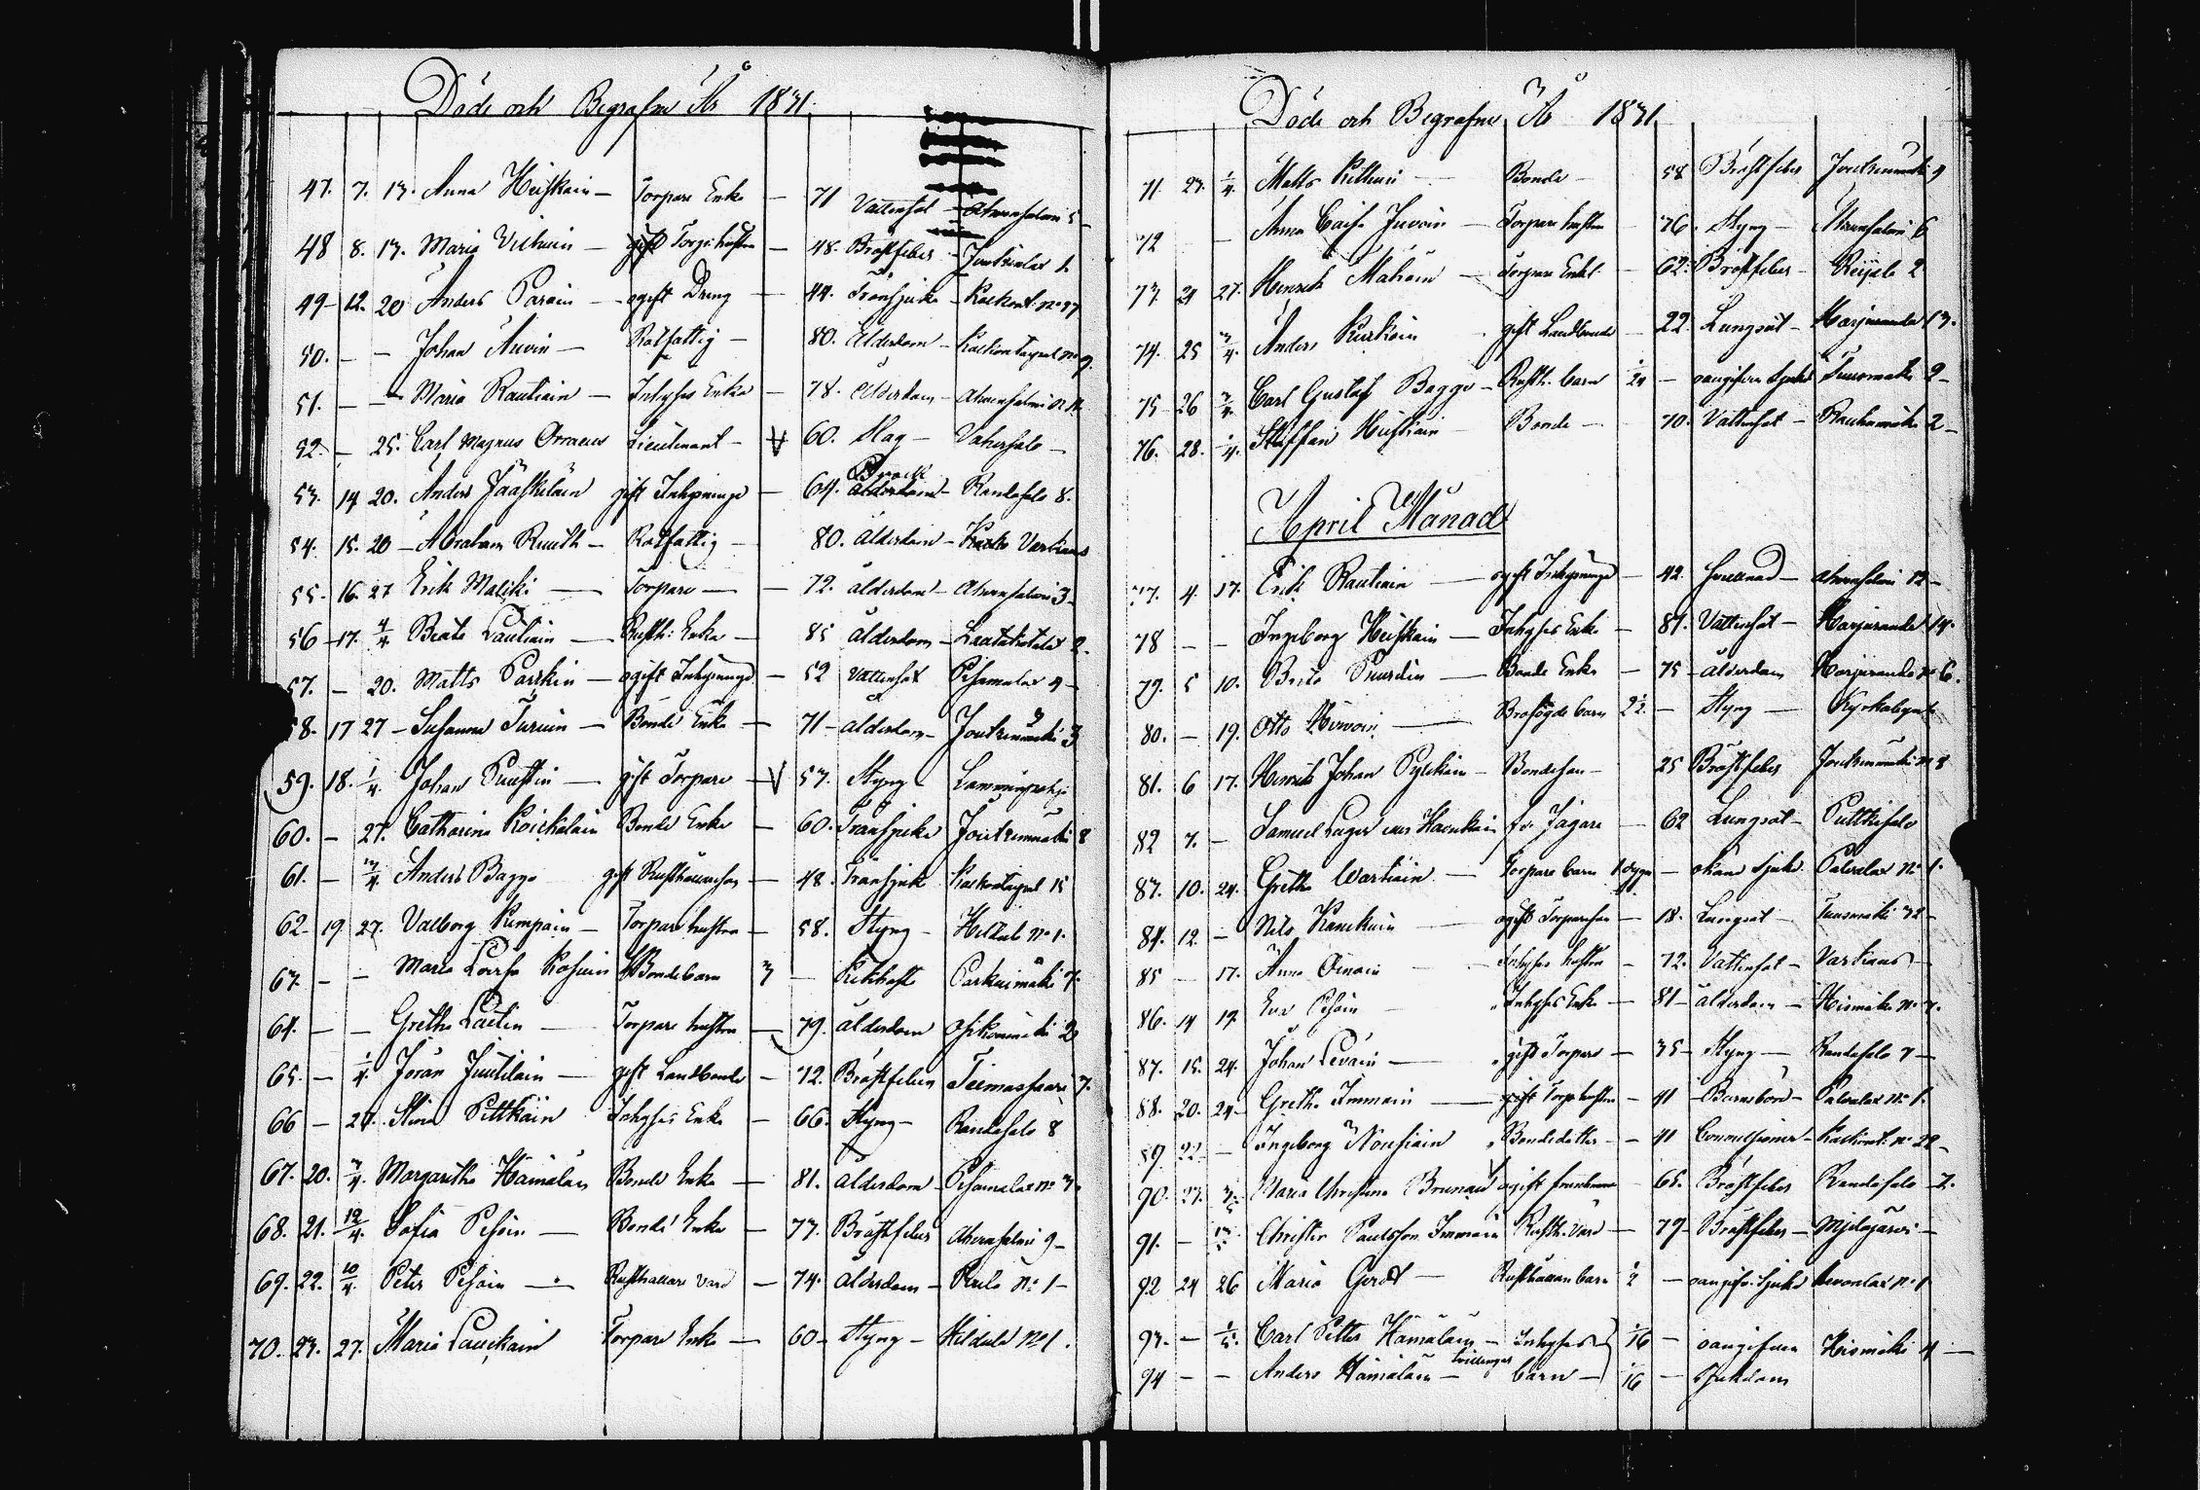 Döde och Begrafne År 1831.
47. 7. 13. Anna Heiskain – Torpare Enka – 71 Vattensot – Ahvensalmi 5
48 8. 13. Maria Vilhuin – Torp: hustru – 48. Bröstfeber – Joutsenlax 1.
49 – 12. 20 Anders Parain – ogift Dreng – 44. Transjuka – Kackont. No 27
50. – – Johan Auvin – Rotfattig – 80. Ålderdom – Kackontaipal No 9
51. – – Maria Rautiain – Inhyses Enka – 78. Ålderdom – Ahvensalmi
52. – 25. Carl Magnus Orraeus Lieutenant – 60. Slag – Vahersalo –
53. 14 20. Anders Jääskeläin gift Inhysinge – 64. Bråck Randasalo 8.
54. 15. 20 – Abraham Ruuth – Rotfattig – 80. Ålderdom – Varkaus
55. 16. 27 Erik Maliki – Torpare – 72. Ålderdom – Ahvensalmi 3 –
56 – 17. 4/4 Beata Lautiain – Rusth: Enka – 85 Ålderdom – 2.
57. – 20. Matts Parkin – ogift Inhysinge – 52 Vattensot Pisamalax 4 –
58. 17 27 – Susanna Turuin – Bonde Enka – 71 – Ålderdom – Joutsenmäki 3
59. 18. 1/4. Johan Puustin – gift Torpare – 53. Styng – Lamminpohja
60. – 27. Catharina Koickalain Bonde Enka – 60. Transjuka Joutsenmäki 8
61. – 3/4. Anders Bagge gift Rusthållareson – 48. Transjuk Kackontaipal 15
62 – 19 27. Valborg Kimpain – Torpare hustru – 58. Styng – Hildula No 1.
63. – – Maria Lovisa Kosuin Bondebarn 3 – Kikhosta Parkuimäki 7.
64. – – Gretha Laitin – Torpare hustru – 79. Ålderdom Osikonmäki 2
65. – 1/4. Jöran Juutilain – gift Landbonde – 72. Bröstfeber Teemassaari 7.
66 – 27. Stina Pittkäin Inhyses Enka – 66. Styng – Randasalo 8
67. 20. 3/4. Margaretha Hämäläin Bonde Enka – 81. Ålderdom – Pisamalax No 3.
68. 21. 12/4. Sofia Pesoin – Bonde Enka – 77. Bröstfeber Ahvensalmi 9 –
69. 22. 10/4. Peter Pesoin – Rusthållare Vård – 74. Ålderdom – No 1 –
70. 23. 27. Maria Lauckain Torpare Enka – 60 – Styng – Hildula No 1.
Döde och Begrafne År 1831
71 23. 1/4. Matts Kettuin – Bonde – 58 Bröstfeber Joutsenmäki 9
72 – Anna Caisa Juvoin – Torpare hustru – 76. Styng – Ahvensalmi 6
73. 24 27. Henrik Makoin – Torpare Enkl. – 62. Bröstfeber – 2
74. 25 3/4. Anders Kurkoin gift Landbonde – 22 Lungsot – Harjuranda 13.
75 26 3/4. Carl Gustaf Bagge – Rusth: barn 1/24 – oangifven Sjukd Tuusmäki 2 –
76. 28. 1/4. Staffan Heiskain Bonde – 70. Vattensot – Rauhamäki 2 –
April Månad
77. 4. 17. Erik Rautiain – ogift Inhysinge – 42. Ahvensalmi 12 –
78 – – Ingeborg Heiskain – Inhyses Enka – 81. Vattensot – Harjuranda 14.
79. 5 10. Brita Puurdin – Bonde Enka – 75 – Ålderdom Harjuranda No 6.
80. – 19. Otto Hirvoin – barn 2 1/2. – Styng – Kyrkobyn
81. 6 17. Henrik Johan Pylckäin – Bondeson – 25 Bröstfeber Joutsenmäki No 8
82 7. – Samuel Lager f.d. Jägare – 62 Lungsot – Puttkisalo
83. 10. 24. Gretha Wartiain – Torpare barn 1 dygn – okänd Sjukd. Palvalax No 1.
84. 12. – Nils Kauckain ogift Torpareson – 18. Lungsot – Tuusmäki 32 –
85 17. Anna Oinoin – Inhyses hustru – 72. Vattensot – Varkaus –
86. 14 17 Eva Pesoin Inhyses Enka – 81 – Ålderdom – Hismäki No 7.
87. 15. 24. Johan Levain – gift Torpare – 35 – Styng – Randasalo 7 –
88. 20. 24 – Gretha Immoin – gift Torp: hustru – 41 – Barnsbörd – Palvalax No 1.
89 22. – Ingeborg Nousiain Bondedotter – 41 Convulsioner – Kackont. No 22 –
90. 23. 3/5. Maria Christina Brunau ogift 65. Bröstfeber Randasalo – 2.
91. – 13/5. Christer Paulsson Immoin Rusth: Vård – 79 – Bröstfeber – Mjelajärvi –
92 24 26 Maria Gerdt – Rusthållare barn 1/2 – oangifv. Sjukd Savonlax No 1
93. – 1/5. Carl Petter Hämäläin – Inhyses 1/16 – oangifven Hismäki 4 –
94 – – Anders Hämäläin – tvillingar barn – 1/16 – Sjukdom